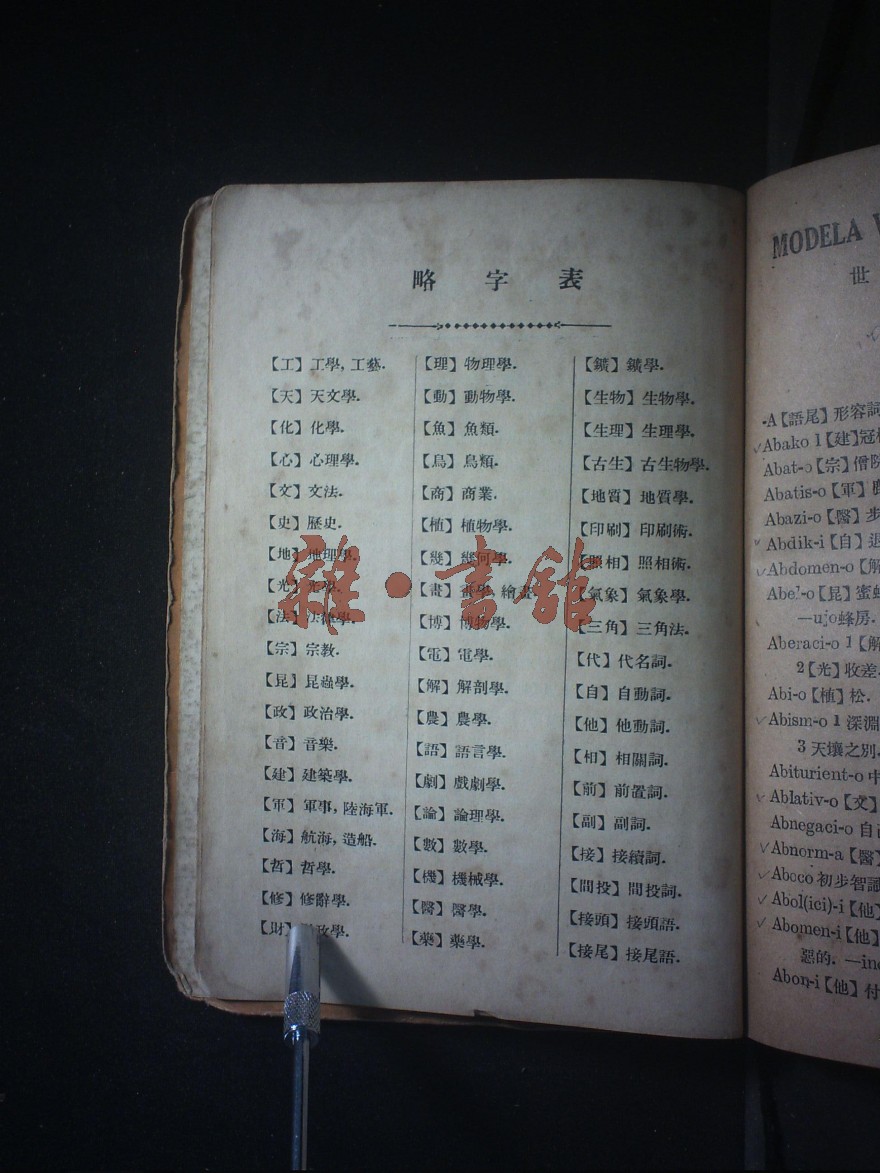 略字表
【工】工學, 工藝.
【天】天文學.
【化】化學.
【心】心理學.
【文】文法.
【史】歷史.
【地】地理學.
【光】光學.
【法】法律學.
【宗】宗教.
【昆】昆蟲學.
【政】政治學.
【音】音樂.
【建】建築學.
【軍】軍事, 陸海軍.
【海】航海, 造船.
【哲】哲學.
【修】修辭學.
【財】政學.
【理】物理學.
【動】動物學.
【魚】魚類.
【鳥】鳥類.
【商】商業.
【植】植物學.
【幾】幾何學.
【畫】畫學, 繪畫.
【博】博物學.
【電】電學.
【解】解剖學.
【農】農學.
【語】語言學.
【劇】戲劇學.
【論】論理學.
【數】數學.
【機】機械學.
【醫】醫學.
【藥】藥學.
【鑛】鑛學.
【生物】生物學.
【生理】生理學.
【古生】古生物學.
【地質】地質學.
【印刷】印刷術.
【照相】照相術.
【氣象】氣象學.
【三角】三角法.
【代】代名詞.
【自】自動詞.
【他】他動詞.
【相】相關詞.
【前】前置詞.
【副】副詞.
【接】接續詞.
【間投】間投詞.
【接頭】接頭語.
【接尾】接尾語.
雜·書館
MODELA
世
-A【語尾】形容詞
Abako 1【建】冠
Abat-o【宗】僧院
Abatis-o【軍】
Abazi-o【醫】步
Abdik-i【自】退
Abdomen-o【解
Abel-o【昆】蜜蜂
—ujo蜂房.
Aberaci-o 1【解
2【光】收差.
Abi-o【植】松.
Abism-o 1 深淵
3 天壤之別.
Abiturient-o 中
Ablativ-o【文】
Abnegaci-o 自
Abnorm-a【醫】
Aboco 初步智識
Abol(ici)-i【他】
Abomen-i【他】
惡的. —ind
Abon-i【他】付